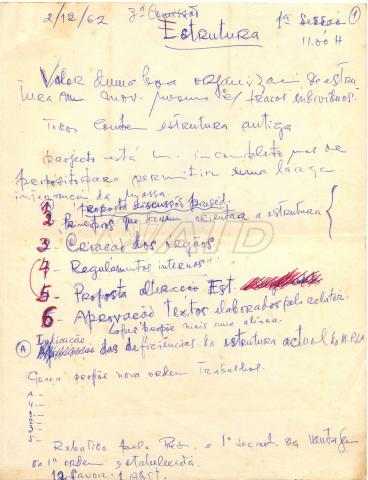 2/12/62 3ª Comissão 1ª Sessão 1
Estrutura 11.00 H
Valor duma boa organização de estru
tura um mov. mesmo c/ fracos indivíduos.
Todos contra estrutura antiga
projecto está incompleto mas de
proposito para permitir uma larga
da massa.
1 - proposta discussão
2 - Princípios que devem orientar a estrutura
3 - Criação dos orgãos
4 - Regulamentos internos
5 - Proposta alteração Est.
6 - Aprovação textos elaborados pelo relator.
Lopes propõe mais uma alinea.
A Indicação das deficiências da estrutura actual do M.P.L.A
Graça propõe nova ordem trabalhos.
A -
4 -
1 -
2 -
3 -
5 -
Rebatido pelo Pres. e 1º secret. da vantagem
da 1ª ordem estabelecida.
12 favor - 1 Abst.